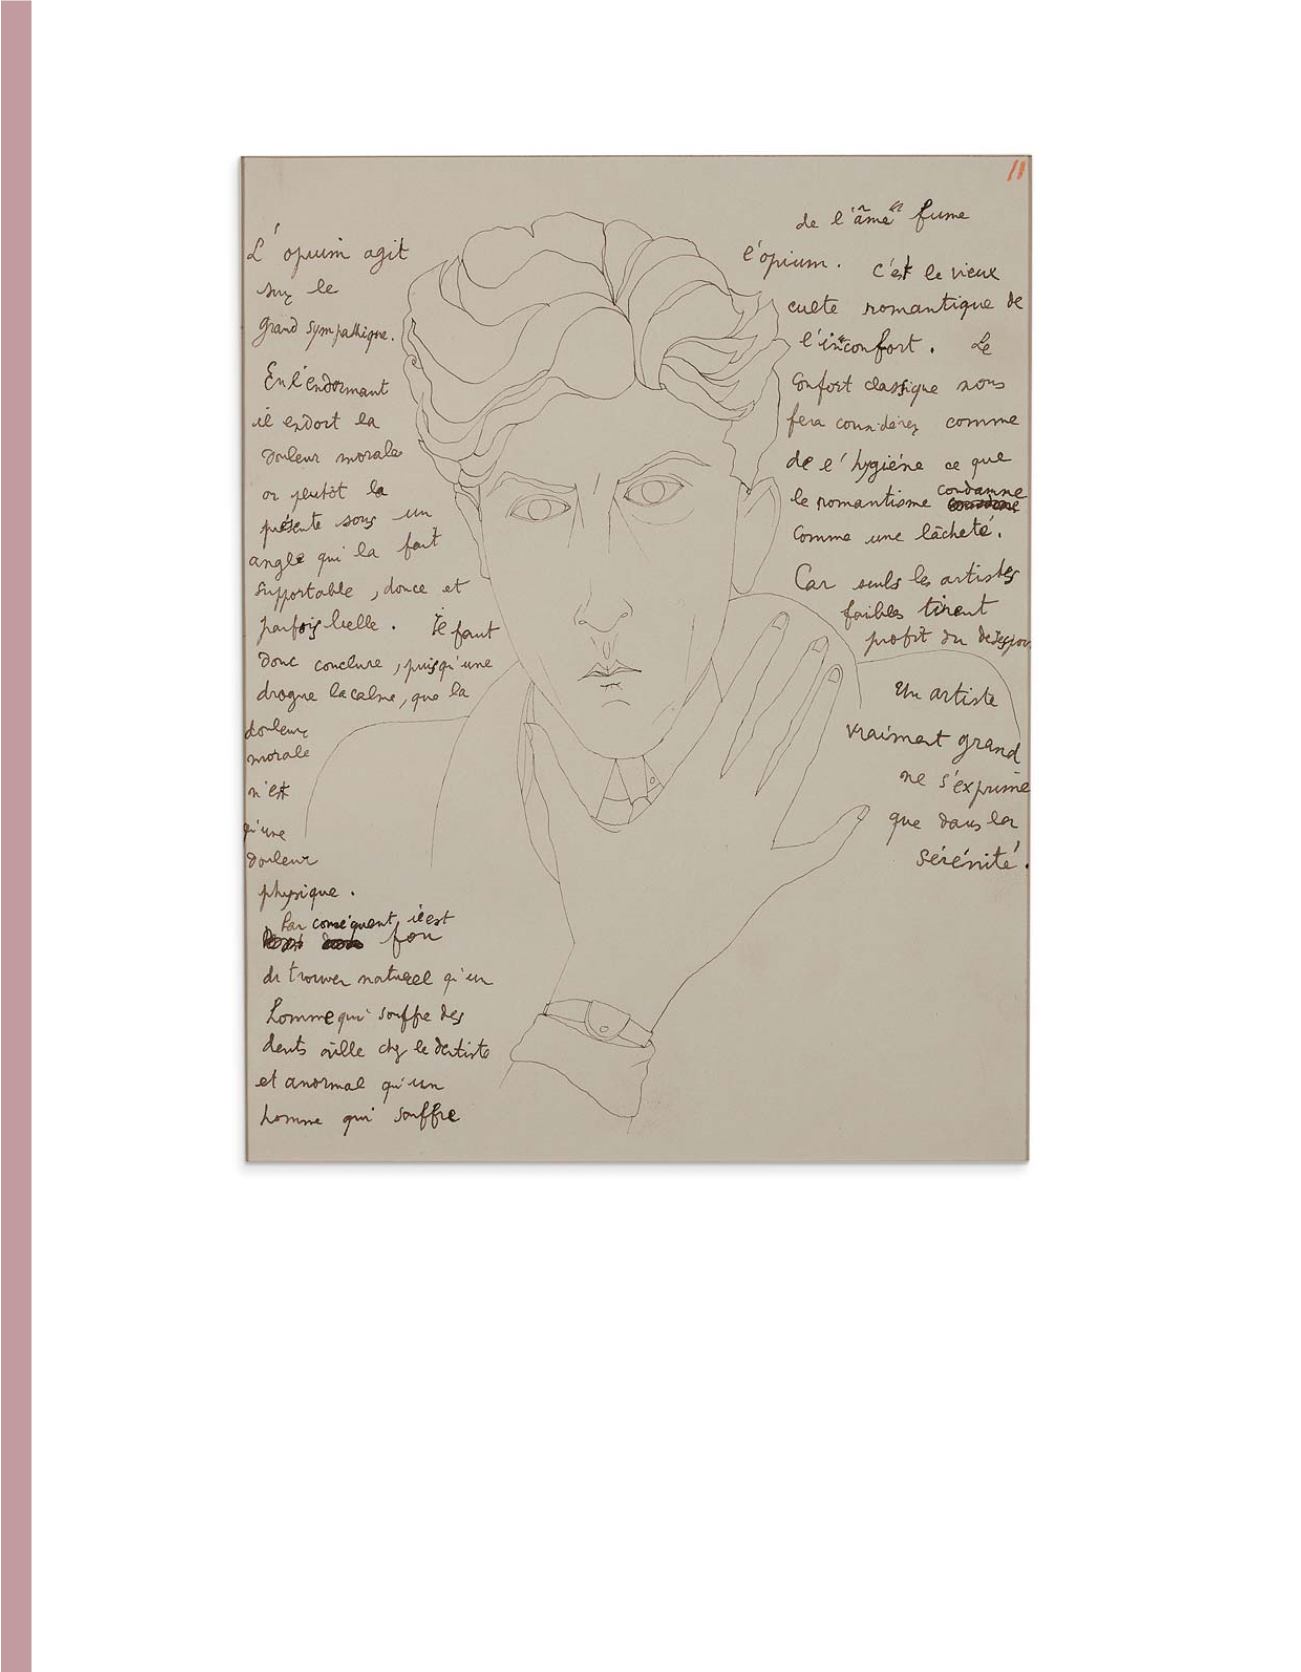 L'opium agit
sur le
grand sympathique.
En l'endormant
il endort la
douleur morale
or plutôt la
présente sous un
angle qui la fait
supportable, douce et
parfois belle. Il faut
donc conclure, puisqu'une
drogue la calme, que la
douleur
morale
n'est
qu'une
douleur
physique.
Par conséquent, il est
fou
de trouver naturel qu'un
homme qui souffre des
dents aille chez le dentiste
et anormal qu'un
homme qui souffre
11
de l'"âme" fume
l'opium. C'est le vieux
culte romantique de
l'inconfort. Le
confort classique nous
fera considérer comme
de l'hygiéne ce que
le romantisme condamne
comme une lâcheté.
Car seuls les artistes
faibles tirent
profit du desespoir
Un artiste
vraiment grand
ne s'exprime
que dans la
sérénité.